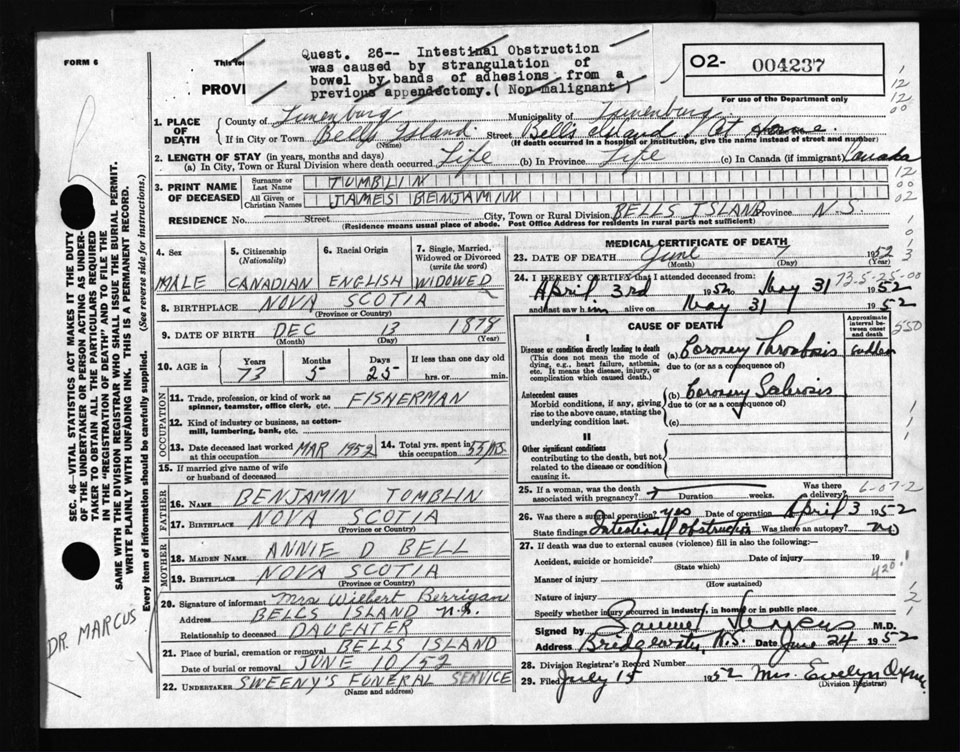 FORM 6
This for
PROVI
Quest. 26-- Intestinal Obstruction
was caused by strangulation of
bowel by bands of adhesions from a
previous appendectomy.( Non-malignant )
02- 004237
For use of the Department only
1. PLACE OF DEATH County of Lunenburg Municipality of Lunenburg
If in City or Town Bells Island. Street Bells Island, At Home.
(Name) (If death occurred in a hospital or institution, give the name instead of street and number)
2. LENGTH OF STAY (in years, months and days)
(a) In City, Town or Rural Division where death occurred Life (b) In Province Life (c) In Canada (if immigrant) Canada
3. PRINT NAME OF DECEASED Surname or Last Name TOMBLIN
All Given or Christian Names JAMES BENJAMIN
RESIDENCE No. Street City, Town or Rural Division BELLS ISLAND Province N.S.
(Residence means usual place of abode. Post Office Address for residents in rural parts not sufficient)
4. Sex MALE
5. Citizenship (Nationality) CANADIAN
6. Racial Origin ENGLISH
7. Single, Married, Widowed or Divorced (write the word) WIDOWED
8. BIRTHPLACE NOVA SCOTIA
(Province or Country)
9. DATE OF BIRTH DEC 13 1878
(Month) (Day) (Year)
10. AGE in Years 73 Months 5 Days 25 If less than one day old hrs. or min.
OCCUPATION
11. Trade, profession, or kind of work as spinner, teamster, office clerk, etc. FISHERMAN
12. Kind of industry or business, as cotton-mill, lumbering, bank, etc.
13. Date deceased last worked at this occupation MAR 1952 14. Total yrs. spent in this occupation 55 YRS
15. If married give name of wife or husband of deceased
FATHER
16. NAME BENJAMIN TOMBLIN
17. BIRTHPLACE NOVA SCOTIA
(Province or Country)
MOTHER
18. MAIDEN NAME ANNIE D BELL
19. BIRTHPLACE NOVA SCOTIA
(Province or Country)
20. Signature of informant Mrs Wilbert Berrigan
Address BELLS ISLAND N.S.
Relationship to deceased DAUGHTER
21. Place of burial, cremation or removal BELLS ISLAND
Date of burial or removal JUNE 10/52
22. UNDERTAKER SWEENY'S FUNERAL SERVICE
(Name and address)
MEDICAL CERTIFICATE OF DEATH
23. DATE OF DEATH June 7 1952
(Month) (Day) (Year)
24. I HEREBY CERTIFY that I attended deceased from: 73-5-25-00
April 3rd 1952 to May 31 1952
and last saw him alive on May 31 1952
CAUSE OF DEATH
Approximate interval between onset and death
I
Disease or condition directly leading to death (a) Coronary Thrombosis sudden
(This does not mean the mode of dying, e.g., heart failure, asthenia, etc. It means the disease, injury, or complication which caused death.)
due to (or as a consequence of)
Antecedent causes (b) Coronary Sclerosis
Morbid conditions, if any, giving rise to the above cause, stating the underlying condition last.
due to (or as a consequence of)
(c)
II
Other significant conditions
contributing to the death, but not related to the disease or condition causing it.
25. If a woman, was the death associated with pregnancy? Duration weeks. Was there a delivery? 6-07-2
26. Was there a surgical operation? yes Date of operation April 3 1952
State findings Intestinal Obstruction Was there an autopsy? no
27. If death was due to external causes (violence) fill in also the following:—
Accident, suicide or homicide? Date of injury 19
(State which)
420.1
Manner of injury
(How sustained)
Nature of injury
Specify whether injury occurred in industry, in home or in public place
Signed by M.D.
Address Bridgewater, N.S. Date June 24 1952
28. Division Registrar's Record Number
29. Filed July 15 1952 Mrs. Evelyn
(Division Registrar)
SEC. 46—VITAL STATISTICS ACT MAKES IT THE DUTY
OF THE UNDERTAKER OR PERSON ACTING AS UNDER-
TAKER TO OBTAIN ALL THE PARTICULARS REQUIRED
IN THE "REGISTRATION OF DEATH" AND TO FILE THE
SAME WITH THE DIVISION REGISTRAR WHO SHALL ISSUE THE BURIAL PERMIT.
WRITE PLAINLY WITH UNFADING INK. THIS IS A PERMANENT RECORD.
Every item of information should be carefully supplied. (See reverse side for instructions.)
DR. MARCUS